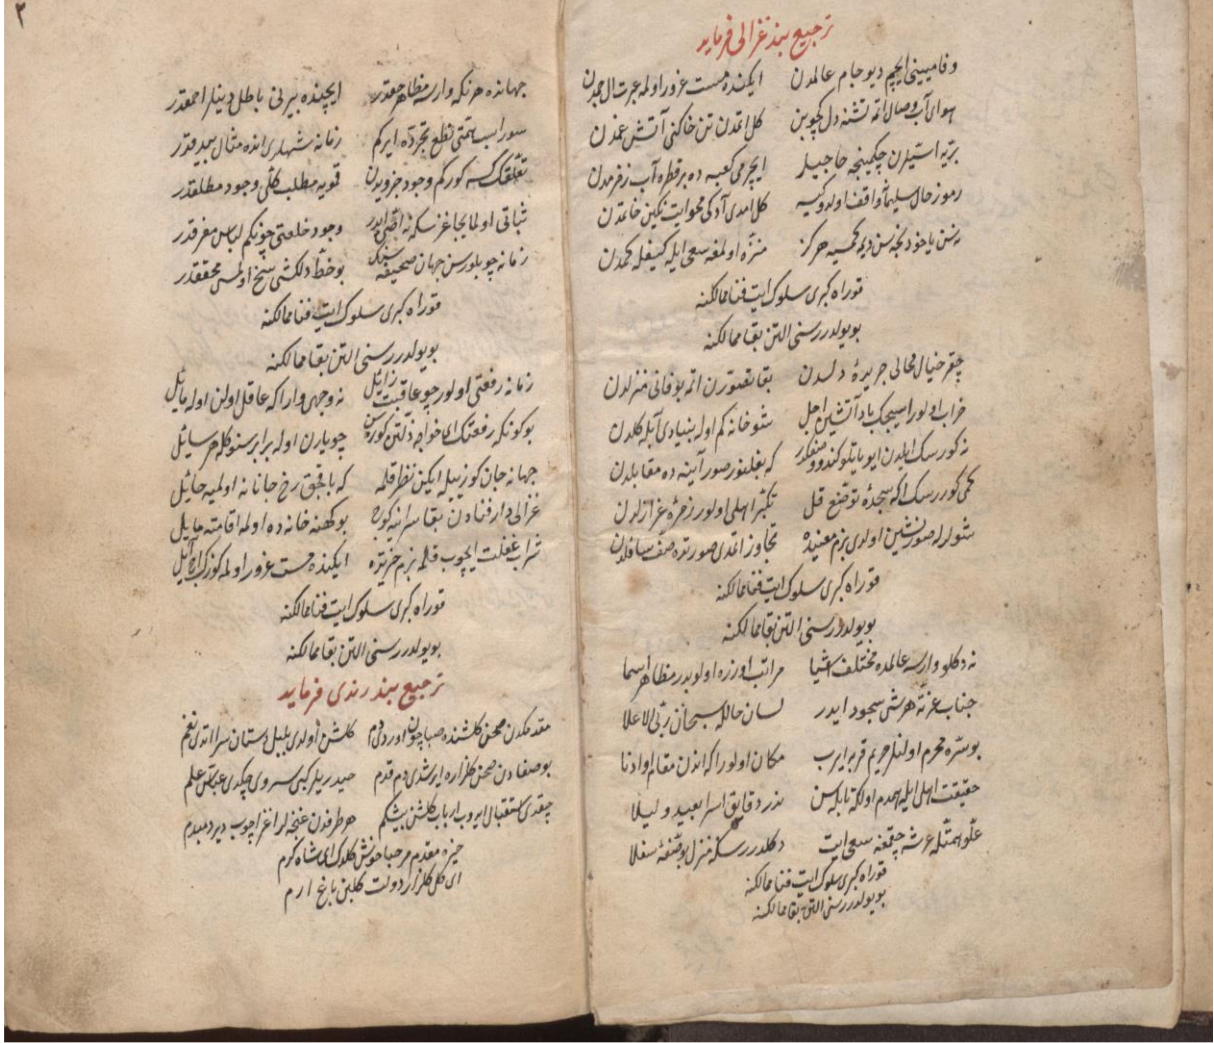 ترجیع بند غزالی فرماید
وفا میینی ایچم دیو جام عالمدن ایکنده مست غرور اولمه عبرت ال جمدن
هوای آب وصال اتمه تشنه دل کچوبن کل اتمدن تن خاکنی آتش غمدن
بریه استیلرن چکینجه حاجیلر ایچرمی کعبه ده بر قطره آب زمزمدن
رموز حال سلیمانه واقف اولدوکیسه کل امدی آدکی محو ایت نکین خاتمدن
نه سن یاخود نجه سن دیمه کمسیه هرکز منزه اولمغه سعی ایله کیفله کمدن
قو راه کبری سلوک ایت فنا ممالکنه
بو یولدر رسنی التن بقا ممالکنه
چقر خیال محالی جریدهٔ دلدن بقا تصورن اتمه بو فانی منزلدن
خراب اولور اسیجک باد آتشین اجل شو خانه کم اوله بنیادی آبله کلدن
نه کورسک ایلدن ایو یاتلو کندوو صنفکدر که بغلنور صور آیینه ده مقابلدن
کمی کوررسک اکه سجدهٔ تواضع قل تکبر اهلی اولور زمرهٔ عزازلدن
شولرله صورنشین اولدی بزم معنیده تجاوز اتمدی صورتده صف سافلدن
قو راه کبری سلوک ایت فنا ممالکنه
بو یولدر رسنی التن بقا ممالکنه
نه دکلو وارسه عالمده مختلف اشیا مراتب اوزره اولوبدر مظاهر اسما
جناب عزته هر شی سجود ایدر لسان حالله سبحان ربی الاعلا
بو سره محرم اولنلر حریم قربه ایرب مکان اولور اکه اندن مقام او ادنا
حقیقت اهلی ایله همدم اول که تا بله سن ندر دقایق اسرا بعبده و لیلا
علو همتله عرشه چقمغه سعی ایت دکلدر رسکه منزل بو صفهٔ سفلا
قو راه کبری سلوک ایت فنا ممالکنه
بو یولدر رسنی التن بقا ممالکنه
۲
جهانده هر نکه وارسه مظاهر حقدر ایچنده بیرنی باطل دینلر احمقدر
سوراسب همتی قطع تجرده ایرکم زمانه شهلری انده مثال بیدقدر
تعلقک کسه کورکم وجود جزویدن قویه مطلب کلی وجود مطلقدر
ثباتی اولمایجاغز سکه نه اقضی ایدر وجود خلعتی چونکم لباس مفرقدر
زمانه چو بلورسن جهان صحیفه سنک بو خط دلکشی نسخ اولمسی محققدر
قو راه کبری سلوک ایت فنا ممالکنه
بو یولدر رسنی التن بقا ممالکنه
زمانه رفعتی اولور چو عاقبت زائل نه وجهی وار اکه عاقل اولن اوله مایل
بو کونکه رفعتک ای خواجه ذلتن کورسن چو یارن اوله برابر سنوکله هر سایل
جهانه جان کوزیله ایکن نظر قلمه که باقمق رخ جانانه اولمیه حائل
غزالی دار فنادن بقا سراینه کوچ بو کهنه خانه ده اولمه اقامته مایل
شراب غفلت ایچوب قلمه بزم حرتزه ایکنده مست غرور اولمه کوزک
قو راه کبری سلوک ایت فنا ممالکنه
بو یولدر رسنی التن بقا ممالکنه
ترجیع بند رندی فرماید
مقدمکدن صحن کلشنده صبا چون اوردی دم کلشن اولدی بلبل دستان سرا اتدی نغم
بو صفادن صحن کلزاره ایرشدی دم قدم حیدریلر کبی سروی چکدی عباسی علم
چقدی استقبال ایدوب ارباب کلشن بیشکم هر طرفدن غنچه لر اغز اچوب دیر دمبدم
خیر مقدم مرحبا خوش کلدک ای شاه کرم
ای کل کلزار دولت کلبن باغ ارم